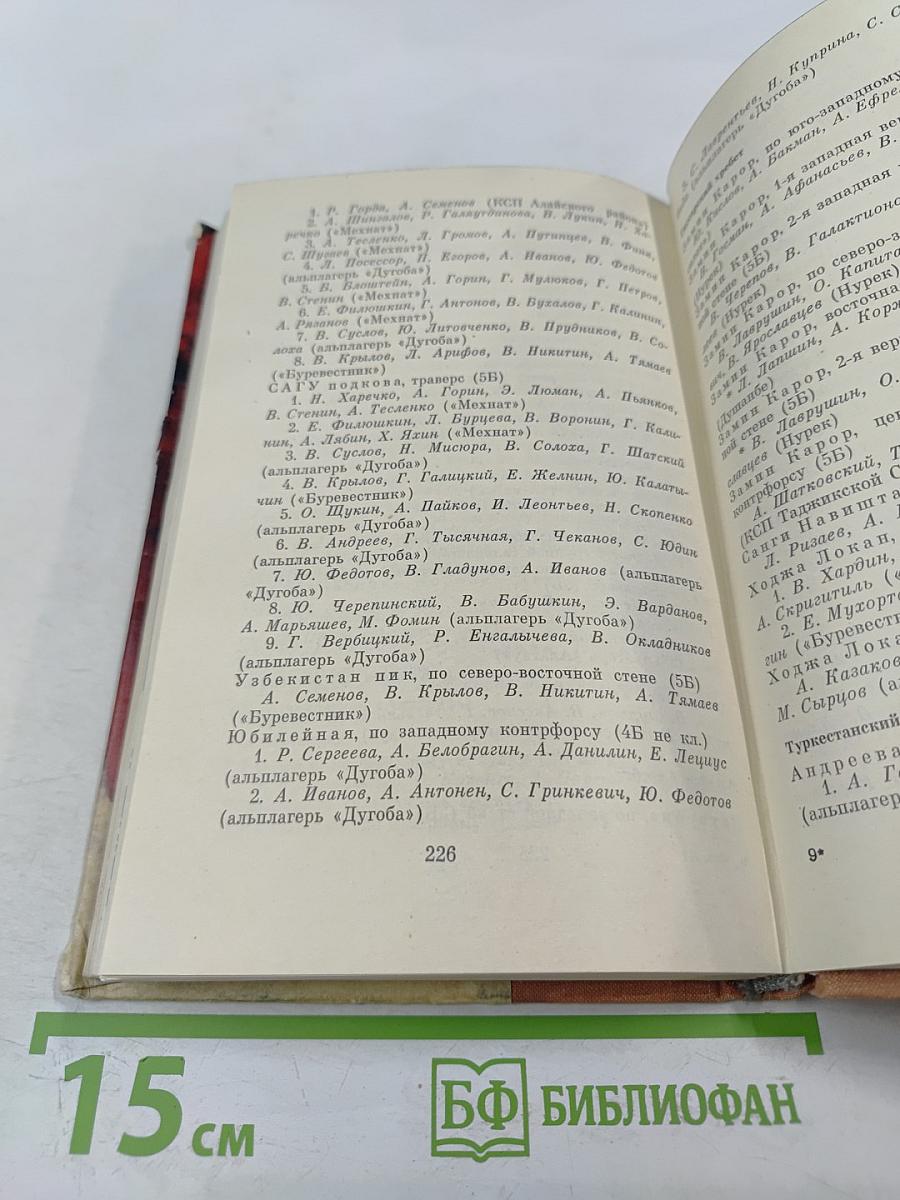 1. Р. Горда, А. Семенов (КСП Алайского района)
2. А. Шингалов, Р. Галяутдинова, В. Лукин, Н. Ха-
речко («Мехнат»)
3. А. Тесленко, Л. Громов, А. Путинцев, В. Финк,
С. Шугаев («Мехнат»)
4. Л. Посессор, Н. Егоров, А. Иванов, Ю. Федотов
(альплагерь «Дугоба»)
5. В. Блоштейн, А. Горин, Г. Мулюков, Г. Петров,
В. Стенин («Мехнат»)
6. Е. Филюшкин, Г. Антонов, В. Бухалов, Г. Калинин,
А. Рязанов («Мехнат»)
7. В. Суслов, Ю. Литовченко, В. Прудников, В. Со-
лоха (альплагерь «Дугоба»)
8. В. Крылов, Л. Арифов, В. Никитин, А. Тямаев
(«Буревестник»)
САГУ подкова, траверс (5Б)
1. Н. Харечко, А. Горин, Э. Люман, А. Пьянков,
В. Стенин, А. Тесленко («Мехнат»)
2. Е. Филюшкин, Л. Бурцева, В. Воронин, Г. Кали-
нин, А. Лябин, Х. Яхин («Мехнат»)
3. В. Суслов, Н. Мисюра, В. Солоха, Г. Шатский
(альплагерь «Дугоба»)
4. В. Крылов, Г. Галицкий, Е. Желнин, Ю. Калаты-
чин («Буревестник»)
5. О. Щукин, А. Пайков, И. Леонтьев, Н. Скопенко
(альплагерь «Дугоба»)
6. В. Андреев, Г. Тысячная, Г. Чеканов, С. Юдин
(альплагерь «Дугоба»)
7. Ю. Федотов, В. Гладунов, А. Иванов (альплагерь
«Дугоба»)
8. Ю. Черепинский, В. Бабушкин, Э. Варданов,
А. Марьяшев, М. Фомин (альплагерь «Дугоба»)
9. Г. Вербицкий, Р. Енгалычева, В. Окладников
(альплагерь «Дугоба»)
Узбекистан пик, по северо-восточной стене (5Б)
А. Семенов, В. Крылов, В. Никитин, А. Тямаев
(«Буревестник»)
Юбилейная, по западному контрфорсу (4Б не кл.)
1. Р. Сергеева, А. Белобрагин, А. Данилин, Е. Лециус
(альплагерь «Дугоба»)
2. А. Иванов, А. Антонен, С. Гринкевич, Ю. Федотов
(альплагерь «Дугоба»)
226
Н. Куприна, С.
(альплагерь «Дугоба»)
Карор, по юго-западному
А. Бакман, А.
Карор, 1-я западная
А. Афанасьев, В.
Замин Карор, 2-я западная
(Нурек)
ной стене (5Б)
В. Черепов, В.
(Нурек)
Замин Карор, по северо-з
В. Лаврушин, О. Капита
вич, В. Ярославцев (Нурек)
Замин Карор, восточна
* Л. Лапшин, А. Корж
(Душанбе)
Замин Карор, 2-я вер
ной стене (5Б)
* В. Лаврушин, О.
славцев (Нурек)
Замин Карор, цен
контрфорсу (5Б)
А. Шатковский, Т
(КСП Таджикской С
Санги Навишта
Л. Ризаев, А.
Ходжа Локан,
1. В. Хардин,
А. Скригитиль («
2. Е. Мухорто
гин («Буревестн
Ходжа Лока
А. Казаков
М. Сырцов (а
Туркестанский
Андреева
1. А. Г
(альплагер
9*
15 см
БФ БИБЛИОФАН